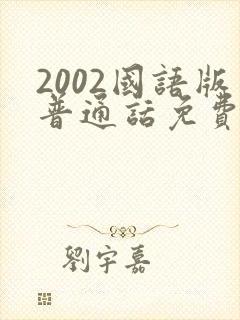 2002國語版
普通話免費
劉宇嘉